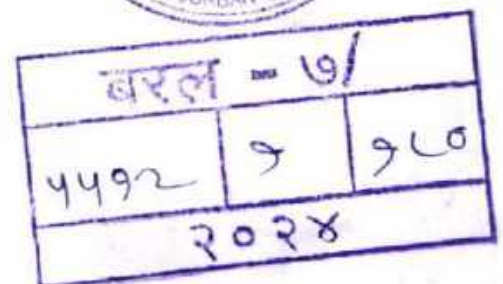 बरल - ७/
५५१२ १ १८०
२०२४